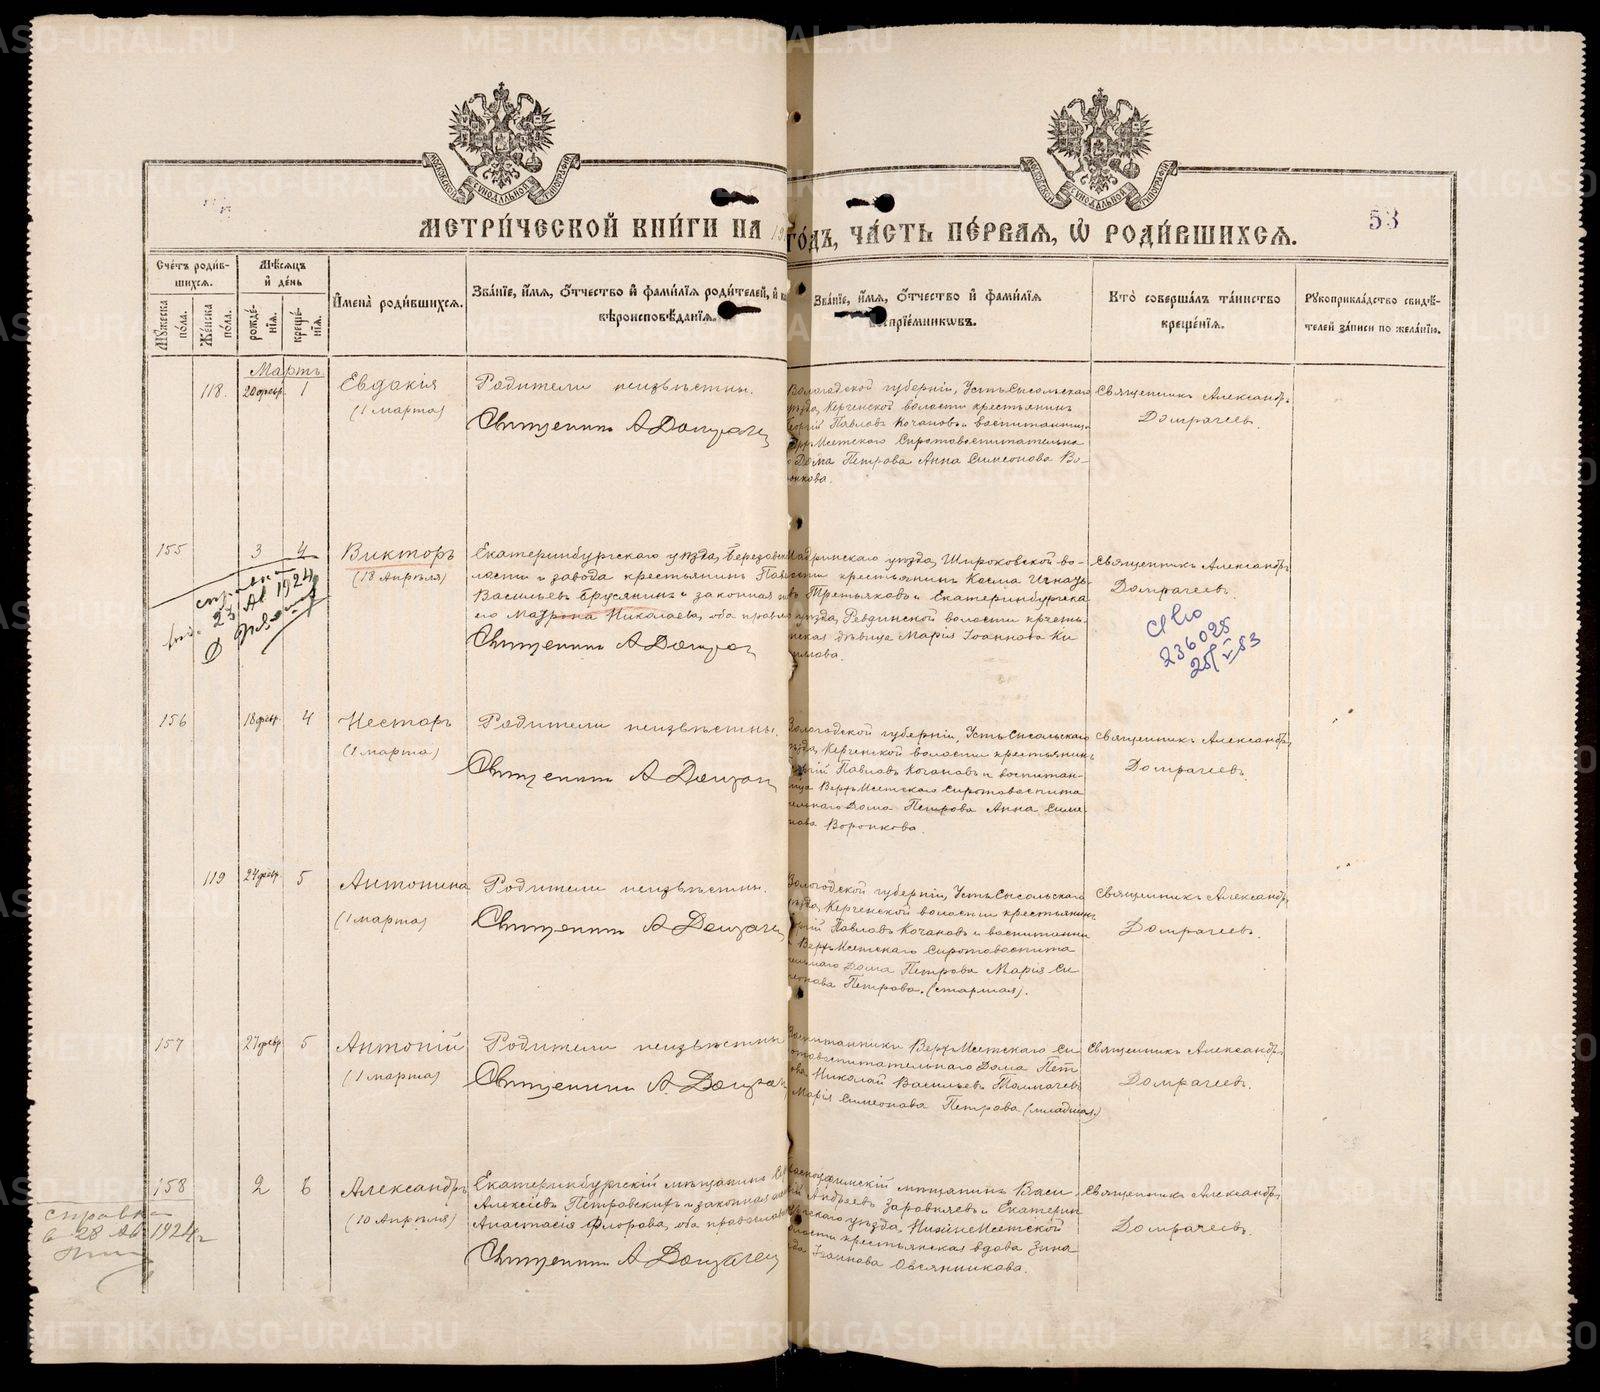 МЕТРИ́ЧЕСКОЙ КНИ́ГИ НА 19 ГО́ДЪ, ЧА́СТЬ ПЕ́РВАЯ, Ѡ РОДИ́ВШИХСЯ.
53
Сче́тъ роди́в-
шихся.
Мѣ́сяцъ
и де́нь
Имена̀ роди́вшихся.
Зва́нїе, и́мя, о́тчество и фами́лїя роди́телей, и
вѣроисповѣ́данїя.
Зва́нїе, и́мя, о́тчество и фами́лїя
воспрїе́мниковъ.
Кто̀ соверша́лъ та́инство
креще́нїя.
Рукоприкла́дство свидѣ́-
телей за́писи по жела́нїю.
Му́жеска
по́ла.
Же́нска
по́ла.
рожде́-
нїя.
креще́-
нїя.
Мартъ
118.
20 февр.
1
Евдокія
(1 марта)
Родители неизвѣстны.
Священникъ А Домрачев
Вологодской губерніи, Устьсысольскаго
уѣзда, Керченской волости крестьянинъ
Георгій Павловъ Кочановъ и воспитанница
ВерхъИсетскаго Сиротовоспитательна
го Дома Петрова Анна Симеонова Во-
ронкова.
Священникъ Александръ
Домрачевъ.
155
3
4
Викторъ
(18 Апрѣля)
Екатеринбургскаго уѣзда, Березовской
волости и завода крестьянинъ Павелъ
Васильевъ Брусянинъ и законная
его Матрона Николаева, оба православ
Священникъ А Домрач
Шадринскаго уѣзда, Широковской во-
лости крестьянинъ Косма Игнать
евъ Третьяковъ и Екатеринбургска
го уѣзда, Ревдинской волости кресть
янская дѣвица Марія Іоаннова Ки
риллова.
Священникъ Александръ
Домрачевъ.
23 Ав 1924
236025
156
18 февр.
4
Несторъ
(1 марта)
Родители неизвѣстны.
Священникъ А Домрач
Вологодской губерніи, Устьсысольскаго
уѣзда, Керченской волости крестьянинъ
Георгій Павловъ Кочановъ и воспитан-
ница ВерхъИсетскаго Сиротовоспита
тельнаго Дома Петрова Анна Симе
онова Воронкова.
Священникъ Александръ
Домрачевъ.
119
24 февр.
5
Антонина
(1 марта)
Родители неизвѣстны.
Священникъ А Домрачев
Вологодской губерніи, Устьсысольскаго
уѣзда, Керченской волости крестьянинъ
Георгій Павловъ Кочановъ и воспитанни
ца ВерхъИсетскаго Сиротовоспита
тельнаго Дома Петрова Марія Си
меонова Петрова. (старшая).
Священникъ Александръ
Домрачевъ.
157
27 февр.
5
Антоній
(1 марта)
Родители неизвѣстны
Священникъ А. Домрач
Воспитанники ВерхъИсетскаго Си
ротовоспитательнаго Дома Пет
рова Николай Васильевъ Толмачевъ
Марія Симеонова Петрова (младшая.)
Священникъ Александръ
Домрачевъ.
158
2
6
Александръ
(10 Апрѣля)
Екатеринбургскій мѣщанинъ
Алексіевъ Петровскихъ и законная жена
Анастасія Флорова, оба православн
Священникъ А Домрачев
Красноуфимскій мѣщанинъ Васи
лій Андреевъ Заровняевъ и Екатерин
бургскаго уѣзда, НижнеИсетской
волости крестьянская вдова Зина
ида Іоаннова Овсянникова.
Священникъ Александръ
Домрачевъ.
справка
28 Ав 1924 г
METRIKI.GASO-URAL.RU